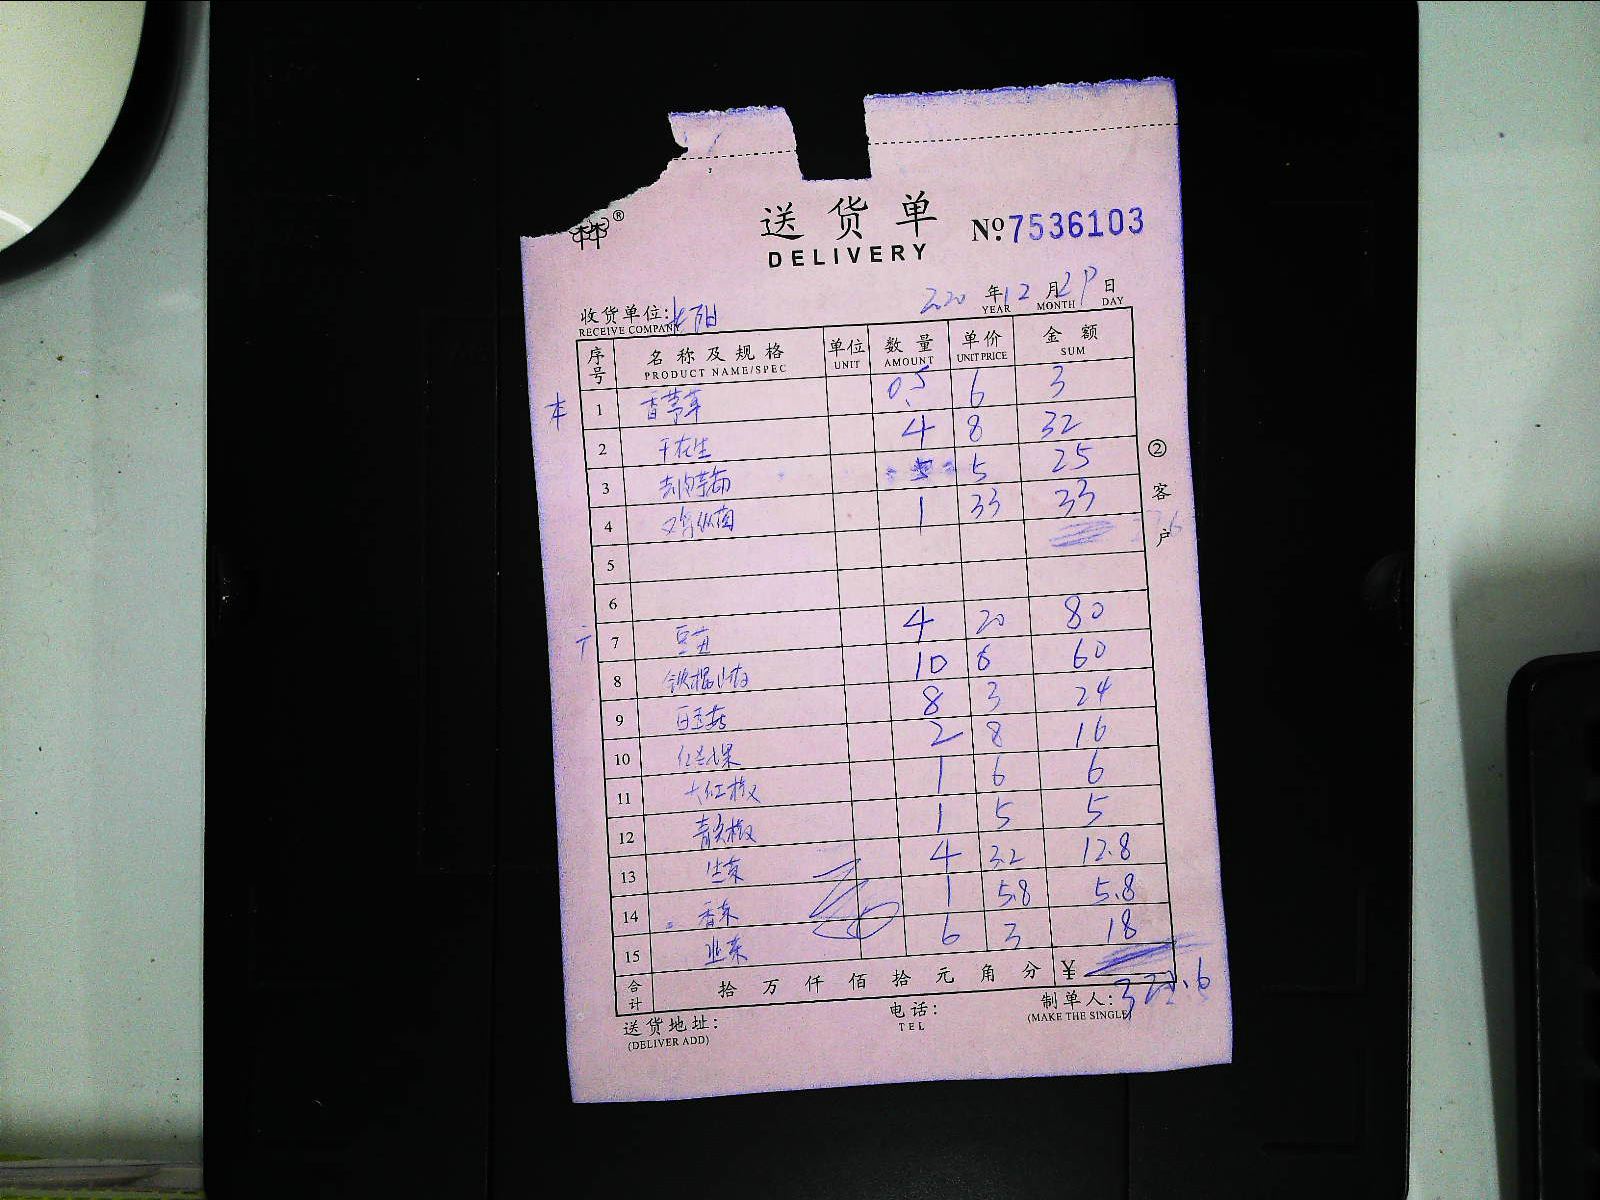 ®
送货单 №7536103
DELIVERY
2020 年 12 月 29 日
YEAR MONTH DAY
收货单位:
RECEIVE COMPANY
序号 名称及规格 单位 数量 单价 金额
PRODUCT NAME/SPEC UNIT AMOUNT UNIT PRICE SUM
本 1 香茅草 0.5 6 3
2 干花生 4 8 32
3 5 5 25
4 鸡纵菌 1 33 33
5
6
7 4 20 80
8 铁棍山药 10 6 60
9 白玉菇 8 3 24
10 2 8 16
11 大红椒 1 6 6
12 青尖椒 1 5 5
13 生菜 4 3.2 12.8
14 香菜 1 5.8 5.8
15 韭菜 6 3 18
合计 拾万仟佰拾元角分 ¥
②客户
送货地址: 电话: 制单人:
(DELIVER ADD) TEL (MAKE THE SINGLE)